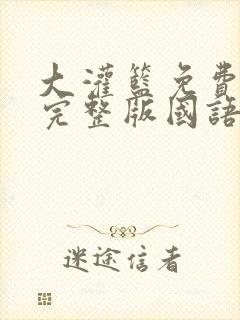 大灌籃免費
完整版國語
迷途信者